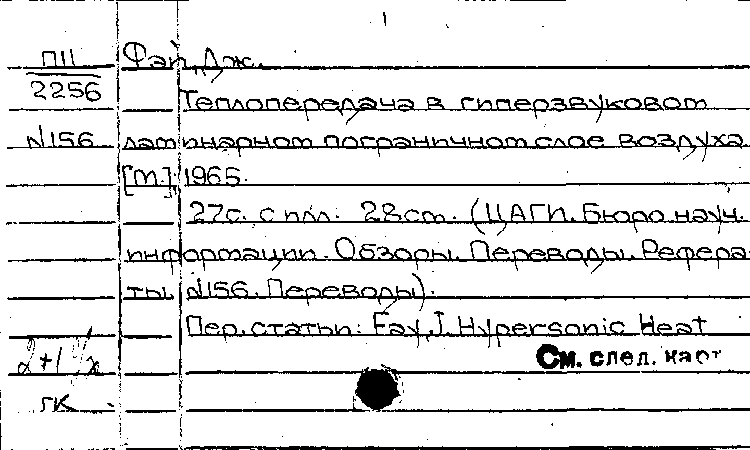 1
П11 Фэй, Дж.
2256 Теплопередача в гиперзвуковом
№156 ламинарном пограничном слое воздуха
[М.], 1965.
27с. с илл. 28см. (ЦАГИ. Бюро науч.
информации. Обзоры. Переводы. Рефера-
ты №156. Переводы).
Пер. статьи: Fay, J. Hypersonic Heat
См. след. карт
гк